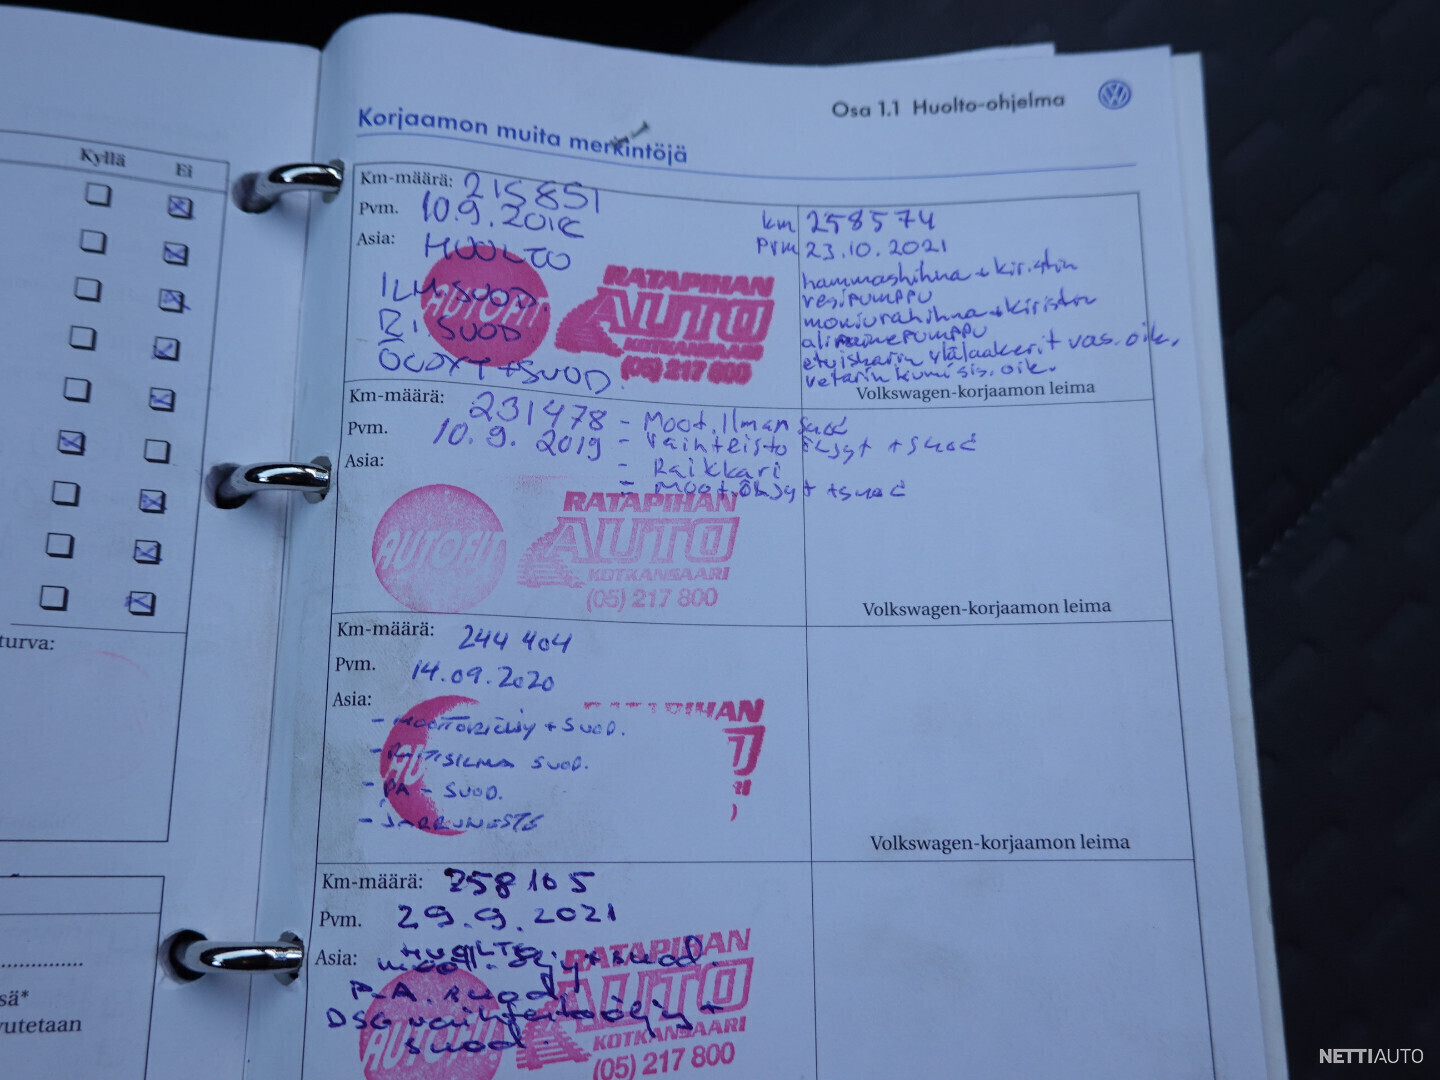 Osa 1.1 Huolto-ohjelma
Korjaamon muita merkintöjä
Kyllä Ei
Km-määrä: 215851
Pvm. 10.9.2018
Asia: HUOLTO
ILM SUOD.
RI SUOD
ÖLJYT + SUOD.
AUTOFIT
RATAPIHAN
AUTO
KOTKANSAARI
(05) 217 800
km 258574
Pvm 23.10.2021
hammashihna + kiristin
vesipumppu
moniurahihna + kiristin
alipainepumppu
etuiskarin ylälaakerit vas. oik.
vetarin kumi sis. oik.
Volkswagen-korjaamon leima
Km-määrä: 231478 - Moot. Ilman suod
Pvm. 10.9.2019 - Vaihteisto öljyt + suod
Asia: - Raikkari
- Moot.öljyt + suod
AUTOFIT
RATAPIHAN
AUTO
KOTKANSAARI
(05) 217 800
Volkswagen-korjaamon leima
Km-määrä: 244 404
Pvm. 14.09.2020
Asia:
- MOOTTORIÖLJY + SUOD.
- RAITISILMA SUOD.
- PA - SUOD.
- JARRUNESTE
RATAPIHAN
Volkswagen-korjaamon leima
Km-määrä: 258105
Pvm. 29.9.2021
Asia: HUOLTO
moott. öljy + suod.
P.A. suod.
DSG vaihteistoöljy +
suod.
AUTOFIT
RATAPIHAN
AUTO
KOTKANSAARI
(05) 217 800
turva:
sä*
vutetaan
NETTIAUTO